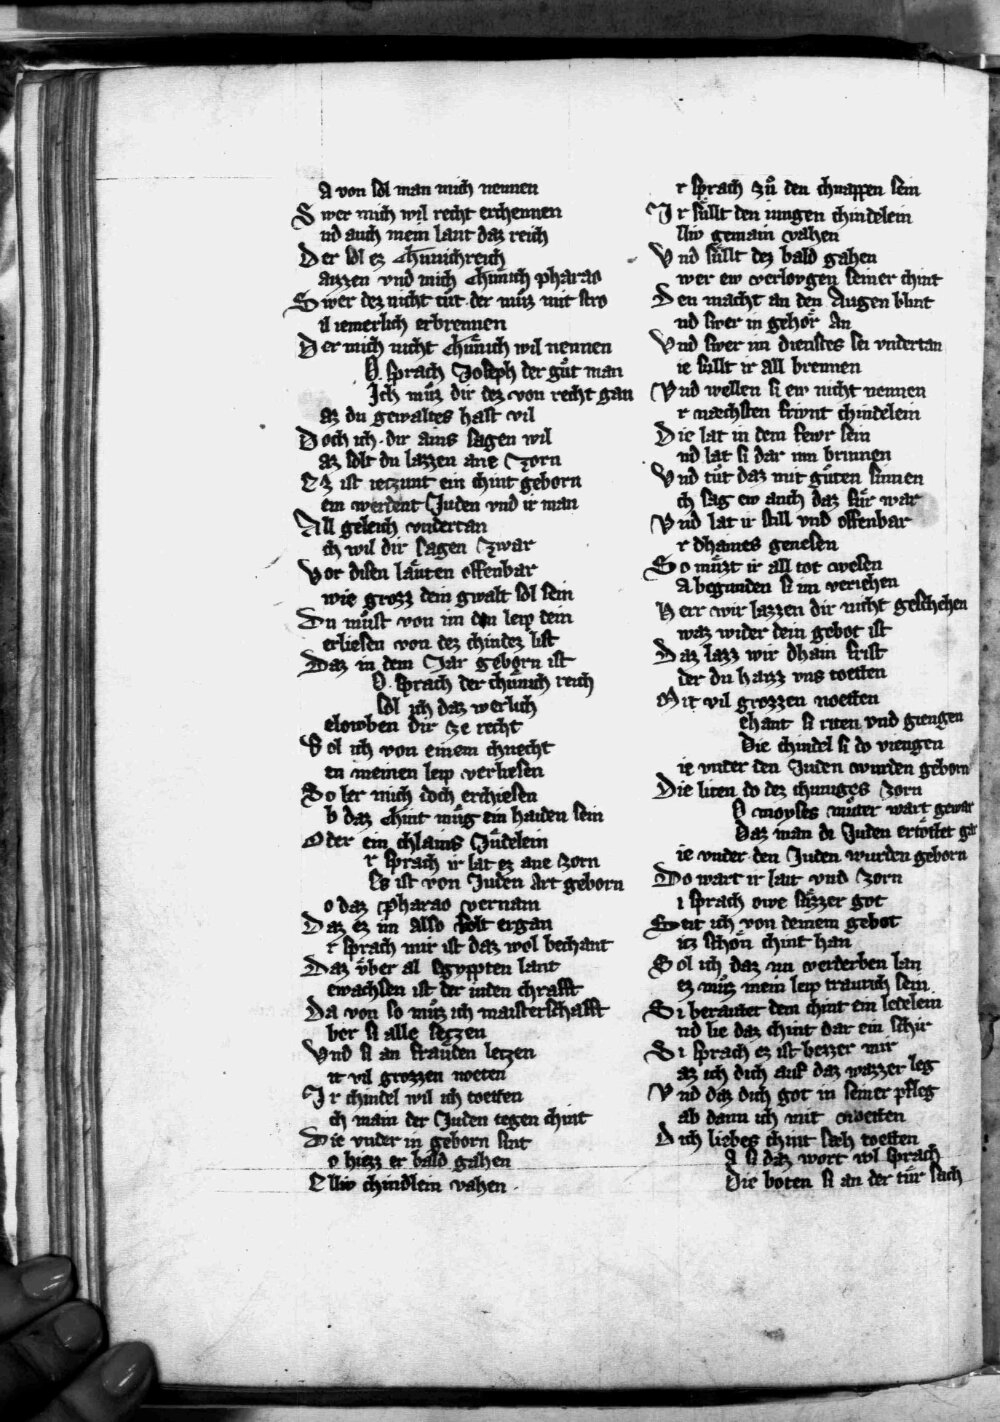 A von sol man mich nennen
S wer mich wil recht erchennen
nd auch mein lant daz reich
Der sol ez Chunichreich
aizzen vnd mich Chunich pharao
S wer dez nicht tut der muz mit fro
il iemerlich erbrennen
Der mich nicht chunich wil nennen
O sprach Joseph der gut man
Ich muz dir dez von recht gan
az du gewaltes hast vil
Doch ich dir ains sagen wil
az solt du lazzen ane zorn
Ez ist ietzunt ein chint geborn
em werdent Juden vnd ir man
All geleich vndertan
ch wil dir sagen zwar
Vor disen läuten offenbar
wie grozz dem gwalt sol sein
Du must von im den leip dein
erliesen von dez chindez list
Daz in dem Jar geborn ist
O sprach der chunich reich
sol ich daz werlich
elowben dir ze recht
Sol ich von einem chnecht
en meinen leip verliesen
So ler mich doch erchiesen
b daz chint mug ein haiden sein
Oder ein chlains Judelein
r sprach ir lat ez ane zorn
Es ist von Juden art geborn
o daz pharao vernam
Daz ez im also solt ergan
r sprach mir ist daz wol bechant
Daz vber al Egypten lant
ewachsen ist der iuden chrafft
Da von so muz ich maisterschafft
ber si alle setzen
Vnd si an frauden letzen
it vil grozzen noeten
Ir chindel wil ich toetten
ch main der Juden tegen chint
Die vnder in geborn sint
o hiezz er bald gahen
Elliv chindlein vahen
r sprach zu den chnappen sein
Ir sullt den iungen chindelein
lliv gemain vahen
Vnd sullt dez bald gahen
wer ew verlovgen seiner chint
Den macht an den Augen blint
nd swer in gehör an
Vnd swer im dienstes sei vndertan
ie sullt ir all brennen
Vnd wellen si ew nicht nennen
r næchsten frivnt chindelein
Die lat in dem fewr sein
nd lat si dar inn brinnen
Vnd tut daz mit guten sinnen
ch sag ew auch daz fur war
Vnd lat ir still vnd offenbar
r dhaines genesen
So muzt ir all tot wesen
A begunden si im veriehen
Herr wir lazzen dir nicht geschehen
waz wider dein gebot ist
Daz lazz wir dhain frist
der du hazz vns toetten
Mit vil grozzen noetten
ehant si riten vnd giengen
Die chindel si do viengen
ie vnter den Juden wurden geborn
Die liten do dez chuniges zorn
O moyses muter wart gewar
Daz man di Juden ertöttet gar
ie vnder den Juden wurden geborn
Do wart ir laut vnd zorn
i sprach owe suzzer got
Seit ich von deinem gebot
itz schön chint han
Sol ich daz nu verderben lan
ez muz mein leip traurich sein
Si beraittet dem chint ein ledelein
nd lie daz chint dar ein schir
Si sprach ez ist bezzer mir
az ich dich auf daz wazzer leg
Vnd daz dich got in seiner pfleg
ab dann ich mit noetten
Dich liebes chint sæh toetten
A si daz wort wl sprach
Die boten si an der tür sach